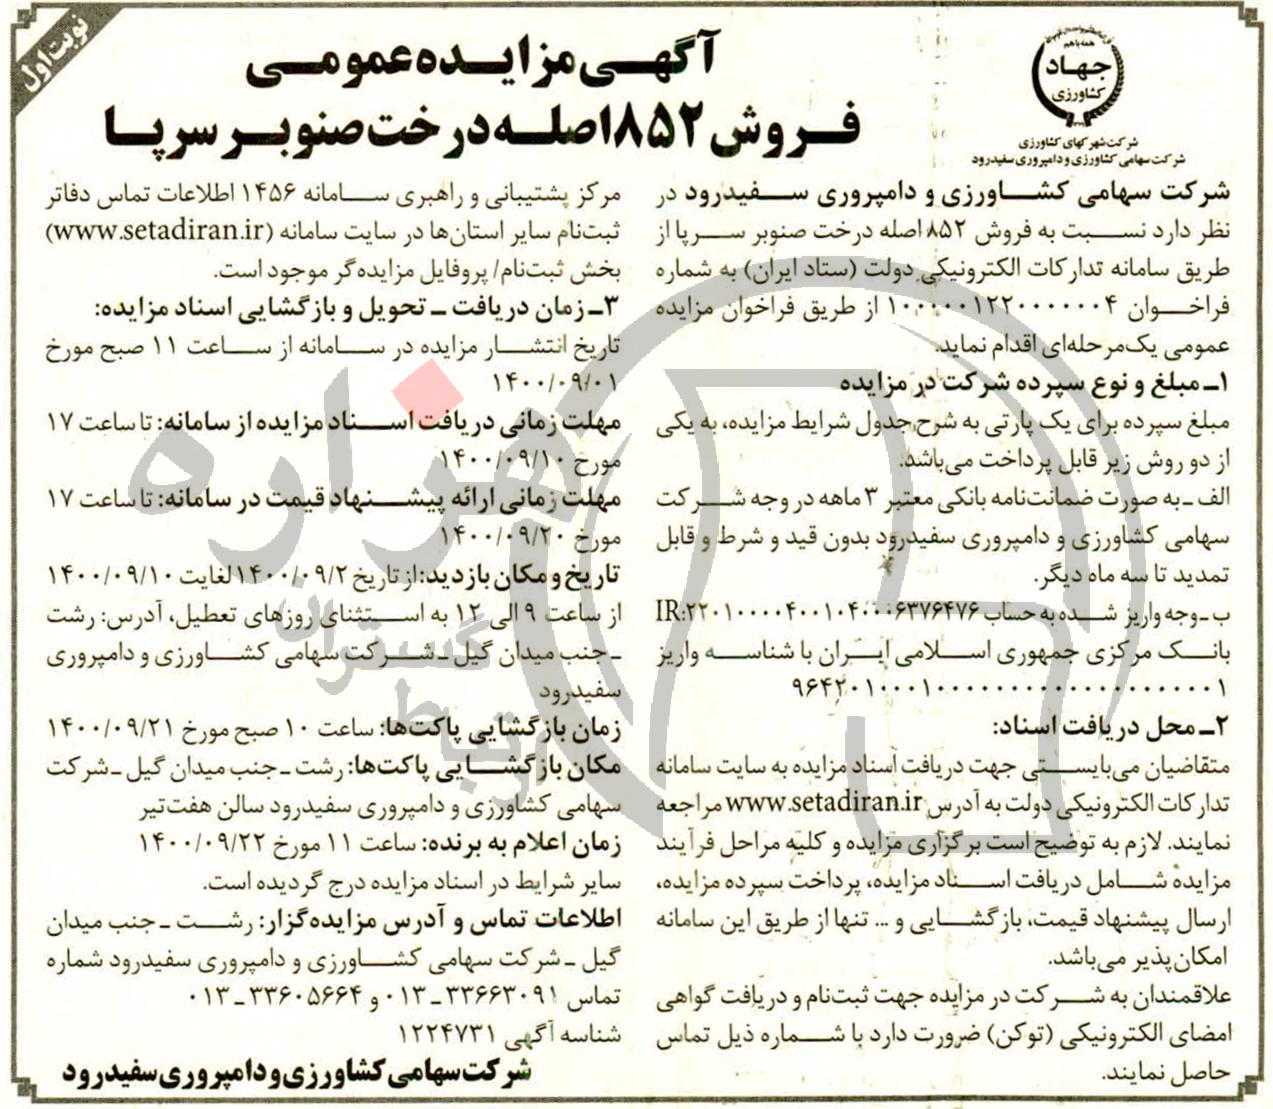 نوبت اول
همه با هم
جهاد
کشاورزی
شرکت شهرکهای کشاورزی
شرکت سهامی کشاورزی و دامپروری سفیدرود
آگهی مزایده عمومی
فروش ۸۵۲ اصله درخت صنوبر سرپا
شرکت سهامی کشاورزی و دامپروری سفیدرود در
نظر دارد نسبت به فروش ۸۵۲ اصله درخت صنوبر سرپا از
طریق سامانه تدارکات الکترونیکی دولت (ستاد ایران) به شماره
فراخوان ۱۰۰۰۰۰۱۲۲۰۰۰۰۰۰۴ از طریق فراخوان مزایده
عمومی یک‌مرحله‌ای اقدام نماید.
۱ـ مبلغ و نوع سپرده شرکت در مزایده
مبلغ سپرده برای یک پارتی به شرح جدول شرایط مزایده، به یکی
از دو روش زیر قابل پرداخت می‌باشد.
الف ـ به صورت ضمانت‌نامه بانکی معتبر ۳ ماهه در وجه شرکت
سهامی کشاورزی و دامپروری سفیدرود بدون قید و شرط و قابل
تمدید تا سه ماه دیگر.
ب ـ وجه واریز شده به حساب IR:۲۲۰۱۰۰۰۰۴۰۰۱۰۴۰۰۰۶۳۷۶۴۷۶
بانک مرکزی جمهوری اسلامی ایران با شناسه واریز
۹۶۴۲۰۱۰۰۰۱۰۰۰۰۰۰۰۰۰۰۰۰۰۰۰۰۰۰۰۱
۲ـ محل دریافت اسناد:
متقاضیان می‌بایستی جهت دریافت اسناد مزایده به سایت سامانه
تدارکات الکترونیکی دولت به آدرس www.setadiran.ir مراجعه
نمایند. لازم به توضیح است برگزاری مزایده و کلیه مراحل فرآیند
مزایده شامل دریافت اسناد مزایده، پرداخت سپرده مزایده،
ارسال پیشنهاد قیمت، بازگشایی و ... تنها از طریق این سامانه
امکان‌پذیر می‌باشد.
علاقمندان به شرکت در مزایده جهت ثبت‌نام و دریافت گواهی
امضای الکترونیکی (توکن) ضرورت دارد با شماره ذیل تماس
حاصل نمایند.
مرکز پشتیبانی و راهبری سامانه ۱۴۵۶ اطلاعات تماس دفاتر
ثبت‌نام سایر استان‌ها در سایت سامانه (www.setadiran.ir)
بخش ثبت‌نام/ پروفایل مزایده‌گر موجود است.
۳ـ زمان دریافت ـ تحویل و بازگشایی اسناد مزایده:
تاریخ انتشار مزایده در سامانه از ساعت ۱۱ صبح مورخ
۱۴۰۰/۰۹/۰۱
مهلت زمانی دریافت اسناد مزایده از سامانه: تا ساعت ۱۷
مورخ ۱۴۰۰/۰۹/۱۰
مهلت زمانی ارائه پیشنهاد قیمت در سامانه: تا ساعت ۱۷
مورخ ۱۴۰۰/۰۹/۲۰
تاریخ و مکان بازدید: از تاریخ ۱۴۰۰/۰۹/۲ لغایت ۱۴۰۰/۰۹/۱۰
از ساعت ۹ الی ۱۲ به استثنای روزهای تعطیل، آدرس: رشت
ـ جنب میدان گیل ـ شرکت سهامی کشاورزی و دامپروری
سفیدرود
زمان بازگشایی پاکت‌ها: ساعت ۱۰ صبح مورخ ۱۴۰۰/۰۹/۲۱
مکان بازگشایی پاکت‌ها: رشت ـ جنب میدان گیل ـ شرکت
سهامی کشاورزی و دامپروری سفیدرود سالن هفت‌تیر
زمان اعلام به برنده: ساعت ۱۱ مورخ ۱۴۰۰/۰۹/۲۲
سایر شرایط در اسناد مزایده درج گردیده است.
اطلاعات تماس و آدرس مزایده‌گزار: رشت ـ جنب میدان
گیل ـ شرکت سهامی کشاورزی و دامپروری سفیدرود شماره
تماس ۳۳۶۶۳۰۹۱ـ۰۱۳ و ۳۳۶۰۵۶۶۴ـ۰۱۳
شناسه آگهی ۱۲۲۴۷۳۱
شرکت سهامی کشاورزی و دامپروری سفیدرود
هزاره
ارتباط
گستران